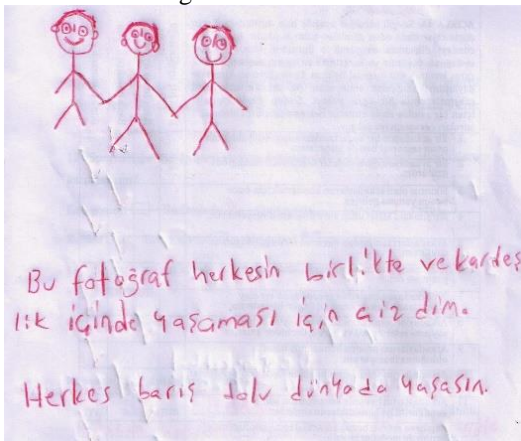 Bu fotoğraf herkesin birlikte ve kardeş
lik içinde yaşaması için çiz dim.
Herkes barış dolu dünyada yaşasın.